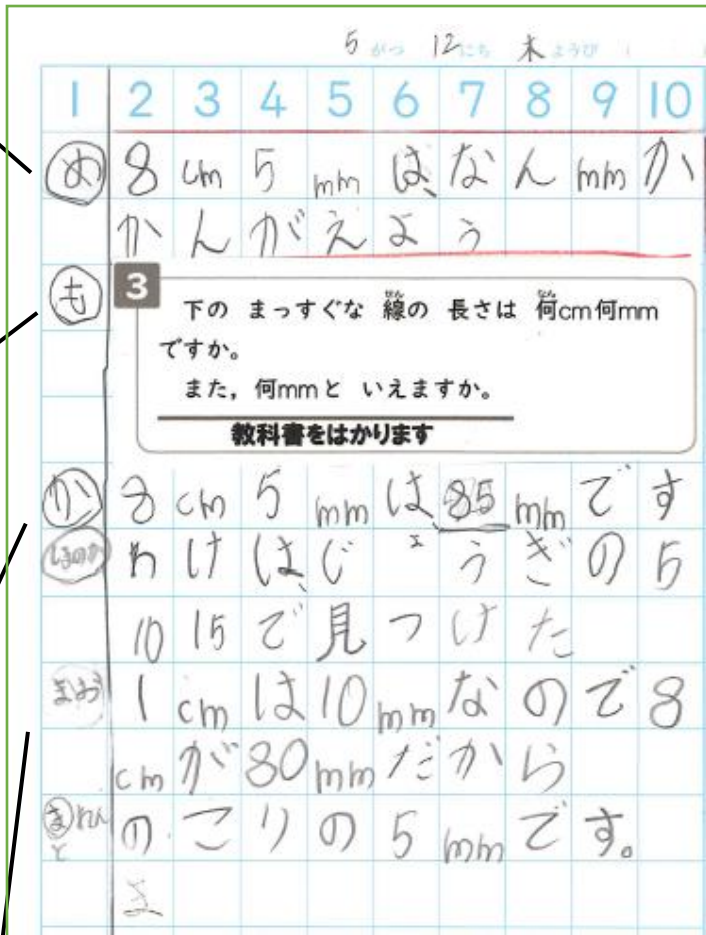 5 がつ 12 にち 木 ようび
1 2 3 4 5 6 7 8 9 10
め 8cm5mmは、なんmmか
かんがえよう
も 3 下の まっすぐな 線の 長さは 何cm何mm
ですか。
また，何mmと いえますか。
教科書をはかります
か 8cm5mmは、85mmです
わけは、じょうぎの5
10 15で見つけた
まお 1cmは10mmなので8
cmが80mmだから
ま のこりの5mmです。
ま